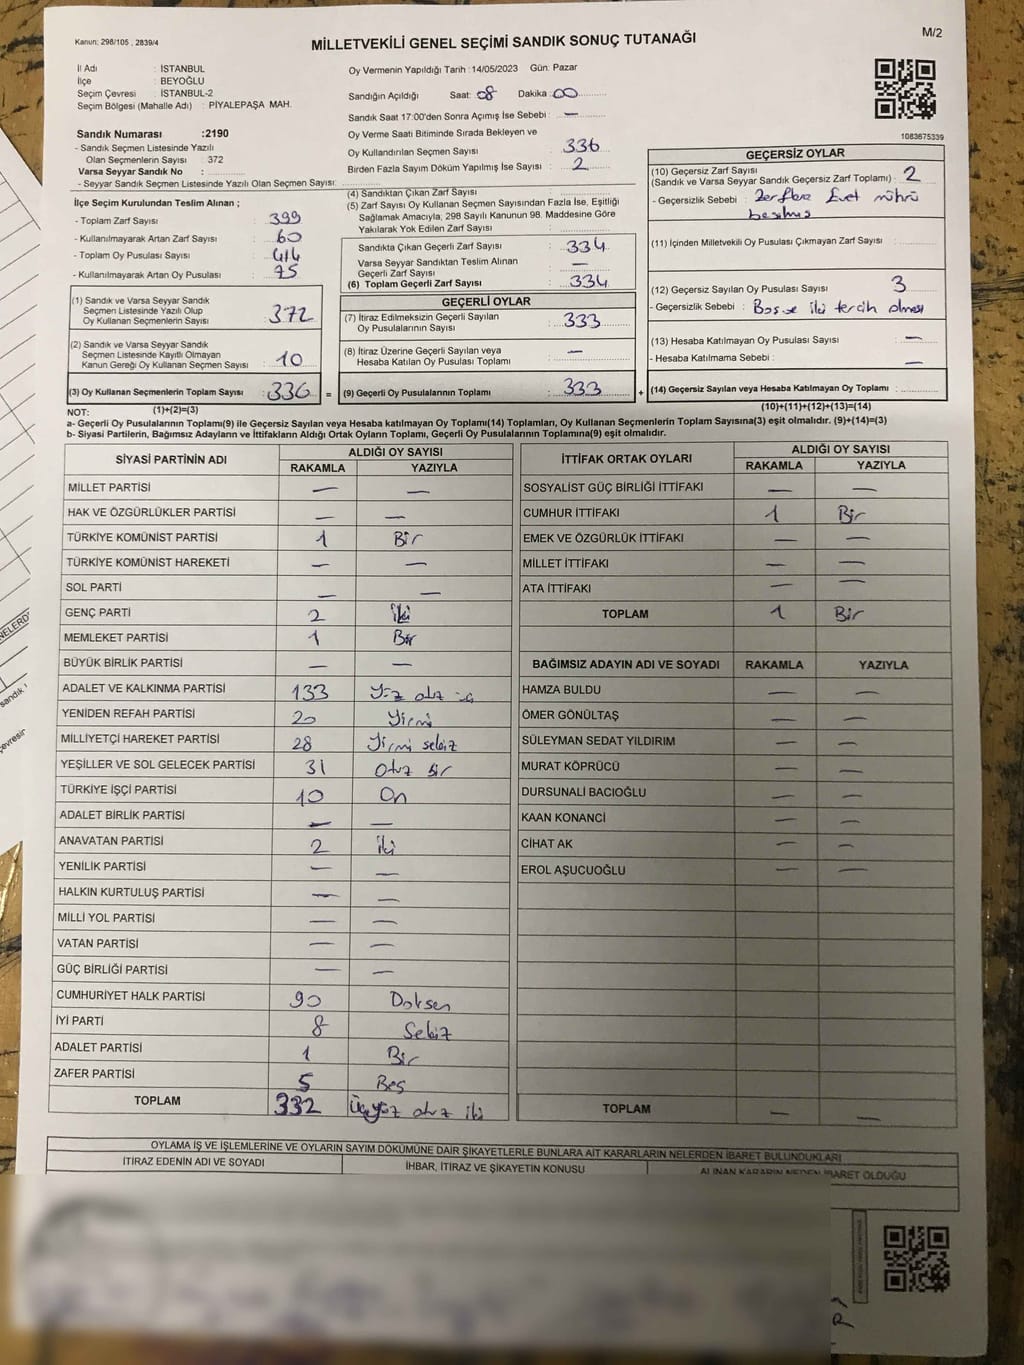 Kanun: 298/105 , 2839/4
MİLLETVEKİLİ GENEL SEÇİMİ SANDIK SONUÇ TUTANAĞI
M/2
İl Adı : İSTANBUL
İlçe : BEYOĞLU
Seçim Çevresi : İSTANBUL-2
Seçim Bölgesi (Mahalle Adı) : PİYALEPAŞA MAH.
Sandık Numarası :2190
- Sandık Seçmen Listesinde Yazılı
Olan Seçmenlerin Sayısı : 372
Varsa Seyyar Sandık No :
- Seyyar Sandık Seçmen Listesinde Yazılı Olan Seçmen Sayısı:
İlçe Seçim Kurulundan Teslim Alınan ;
- Toplam Zarf Sayısı : 399
- Kullanılmayarak Artan Zarf Sayısı : 60
- Toplam Oy Pusulası Sayısı : 414
- Kullanılmayarak Artan Oy Pusulası : 75
(1) Sandık ve Varsa Seyyar Sandık
Seçmen Listesinde Yazılı Olup
Oy Kullanan Seçmenlerin Sayısı : 372
(2) Sandık ve Varsa Seyyar Sandık
Seçmen Listesinde Kayıtlı Olmayan
Kanun Gereği Oy Kullanan Seçmen Sayısı : 10
(3) Oy Kullanan Seçmenlerin Toplam Sayısı : 336
Oy Vermenin Yapıldığı Tarih :14/05/2023 Gün: Pazar
Sandığın Açıldığı Saat: 08 Dakika :00
Sandık Saat 17:00'den Sonra Açımış İse Sebebi : —
Oy Verme Saati Bitiminde Sırada Bekleyen ve
Oy Kullandırılan Seçmen Sayısı : 336
Birden Fazla Sayım Döküm Yapılmış İse Sayısı : 2
(4) Sandıktan Çıkan Zarf Sayısı
(5) Zarf Sayısı Oy Kullanan Seçmen Sayısından Fazla İse, Eşitliği
Sağlamak Amacıyla; 298 Sayılı Kanunun 98. Maddesine Göre
Yakılarak Yok Edilen Zarf Sayısı :
Sandıkta Çıkan Geçerli Zarf Sayısı : 334
Varsa Seyyar Sandıktan Teslim Alınan
Geçerli Zarf Sayısı : —
(6) Toplam Geçerli Zarf Sayısı : 334
GEÇERLİ OYLAR
(7) İtiraz Edilmeksizin Geçerli Sayılan
Oy Pusulalarının Sayısı : 333
(8) İtiraz Üzerine Geçerli Sayılan veya
Hesaba Katılan Oy Pusulası Toplamı : —
= (9) Geçerli Oy Pusulalarının Toplamı : 333
1083675339
GEÇERSİZ OYLAR
(10) Geçersiz Zarf Sayısı
(Sandık ve Varsa Seyyar Sandık Geçersiz Zarf Toplamı) : 2
- Geçersizlik Sebebi : Zarflara Evet mührü
basılmış
(11) İçinden Milletvekili Oy Pusulası Çıkmayan Zarf Sayısı :
(12) Geçersiz Sayılan Oy Pusulası Sayısı : 3
- Geçersizlik Sebebi : Boş ve iki tercih olması
(13) Hesaba Katılmayan Oy Pusulası Sayısı : —
- Hesaba Katılmama Sebebi : —
+ (14) Geçersiz Sayılan veya Hesaba Katılmayan Oy Toplamı :
NOT: (1)+(2)=(3) (10)+(11)+(12)+(13)=(14)
a- Geçerli Oy Pusulalarının Toplamı(9) ile Geçersiz Sayılan veya Hesaba katılmayan Oy Toplamı(14) Toplamları, Oy Kullanan Seçmenlerin Toplam Sayısına(3) eşit olmalıdır. (9)+(14)=(3)
b- Siyasi Partilerin, Bağımsız Adayların ve İttifakların Aldığı Ortak Oyların Toplamı, Geçerli Oy Pusulalarının Toplamına(9) eşit olmalıdır.
SİYASİ PARTİNİN ADI ALDIĞI OY SAYISI
RAKAMLA YAZIYLA
MİLLET PARTİSİ — —
HAK VE ÖZGÜRLÜKLER PARTİSİ — —
TÜRKİYE KOMÜNİST PARTİSİ 1 Bir
TÜRKİYE KOMÜNİST HAREKETİ — —
SOL PARTİ — —
GENÇ PARTİ 2 iki
MEMLEKET PARTİSİ 1 Bir
BÜYÜK BİRLİK PARTİSİ — —
ADALET VE KALKINMA PARTİSİ 133 Yüz otuz üç
YENİDEN REFAH PARTİSİ 20 Yirmi
MİLLİYETÇİ HAREKET PARTİSİ 28 Yirmi sekiz
YEŞİLLER VE SOL GELECEK PARTİSİ 31 Otuz bir
TÜRKİYE İŞÇİ PARTİSİ 10 On
ADALET BİRLİK PARTİSİ — —
ANAVATAN PARTİSİ 2 iki
YENİLİK PARTİSİ — —
HALKIN KURTULUŞ PARTİSİ — —
MİLLİ YOL PARTİSİ — —
VATAN PARTİSİ — —
GÜÇ BİRLİĞİ PARTİSİ — —
CUMHURİYET HALK PARTİSİ 90 Doksan
İYİ PARTİ 8 Sekiz
ADALET PARTİSİ 1 Bir
ZAFER PARTİSİ 5 Beş
TOPLAM 332 Üçyüz otuz iki
İTTİFAK ORTAK OYLARI ALDIĞI OY SAYISI
RAKAMLA YAZIYLA
SOSYALİST GÜÇ BİRLİĞİ İTTİFAKI — —
CUMHUR İTTİFAKI 1 Bir
EMEK VE ÖZGÜRLÜK İTTİFAKI — —
MİLLET İTTİFAKI — —
ATA İTTİFAKI — —
TOPLAM 1 Bir
BAĞIMSIZ ADAYIN ADI VE SOYADI RAKAMLA YAZIYLA
HAMZA BULDU — —
ÖMER GÖNÜLTAŞ — —
SÜLEYMAN SEDAT YILDIRIM — —
MURAT KÖPRÜCÜ — —
DURSUNALİ BACIOĞLU — —
KAAN KONANCİ — —
CİHAT AK — —
EROL AŞUCUOĞLU — —
TOPLAM — —
OYLAMA İŞ VE İŞLEMLERİNE VE OYLARIN SAYIM DÖKÜMÜNE DAİR ŞİKAYETLERLE BUNLARA AİT KARARLARIN NELERDEN İBARET BULUNDUKLARI
İTİRAZ EDENİN ADI VE SOYADI İHBAR, İTİRAZ VE ŞİKAYETİN KONUSU ALINAN KARARIN NEDEN İBARET OLDUĞU